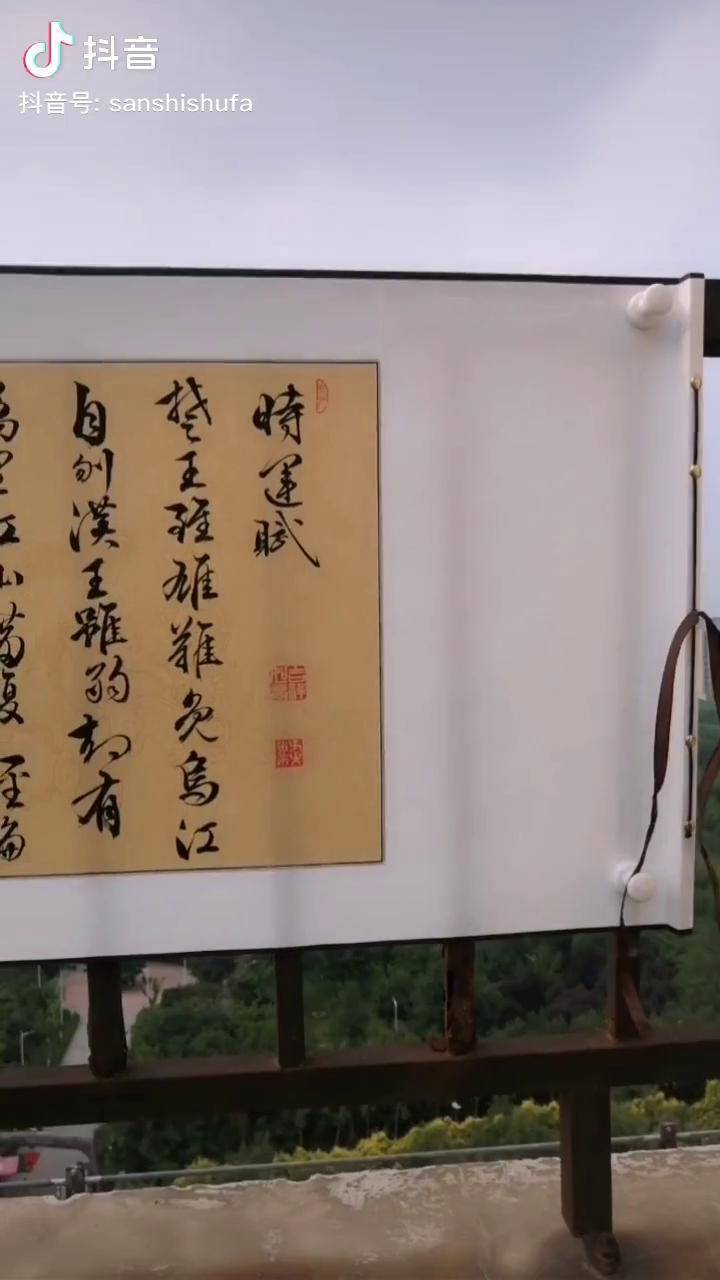 抖音
抖音号: sanshishufa
時運賦
楚王雖雄難免烏江
自刎漢王雖弱却有